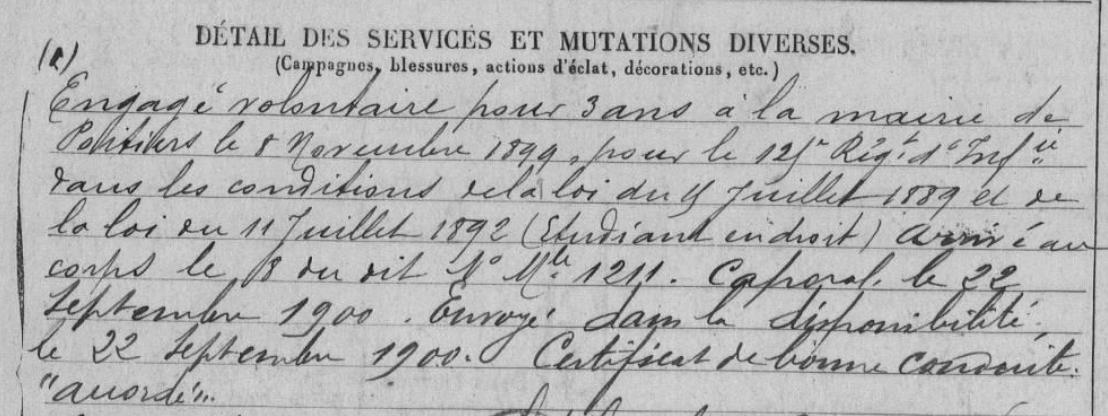 DÉTAIL DES SERVICES ET MUTATIONS DIVERSES.
(Campagnes, blessures, actions d'éclat, décorations, etc.)
Engagé volontaire pour 3 ans à la mairie de
Poitiers le 8 Novembre 1899, pour le 125e Régt d'Infie
dans les conditions de la loi du 15 Juillet 1889 et de
la loi du 11 Juillet 1892 (Etudiant en droit) arrivé au
corps le 8 du dit No Mle 1211. Caporal le 22
Septembre 1900. Envoyé dans la disponibilité
le 22 Septembre 1900. Certificat de bonne conduite
"accordé".